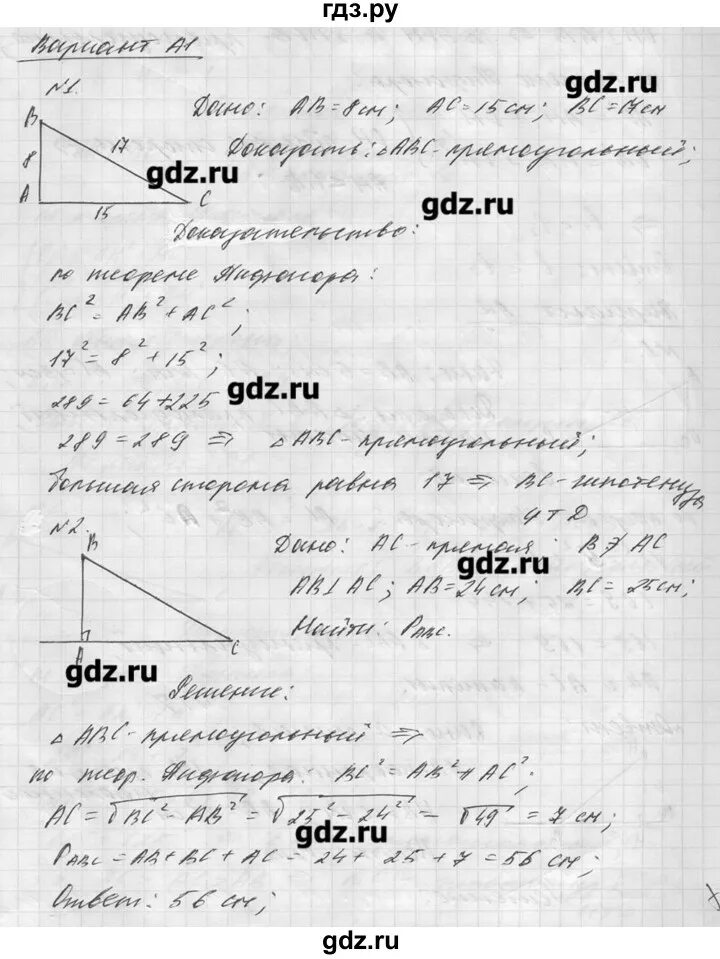 гдз.ру
Вариант А1
gdz.ru
№1.
Дано: AB=8см; AC=15см; BC=17см
B
17
Доказать: △ABC-прямоугольный;
8
gdz.ru
A
C
gdz.ru
15
Доказательство:
по теореме Пифагора:
BC² = AB² + AC²;
17² = 8² + 15²;
gdz.ru
289 = 64+225
289 = 289 ⇒ △ABC-прямоугольный;
большая сторона равна 17 ⇒ BC-гипотенуза
чтд
№2.
B
Дано: AC-прямая B∉AC
gdz.ru
AB⊥AC; AB=24см; BC=25см;
Найти: P_ABC.
A
C
gdz.ru
Решение:
△ABC-прямоугольный ⇒
по теор. Пифагора: BC² = AB² + AC²;
AC = √BC² - AB² = √25² - 24² = √49 = 7 см;
gdz.ru
P_ABC = AB + BC + AC = 24 + 25 + 7 = 56 см;
Ответ: 56 см;
gdz.ru